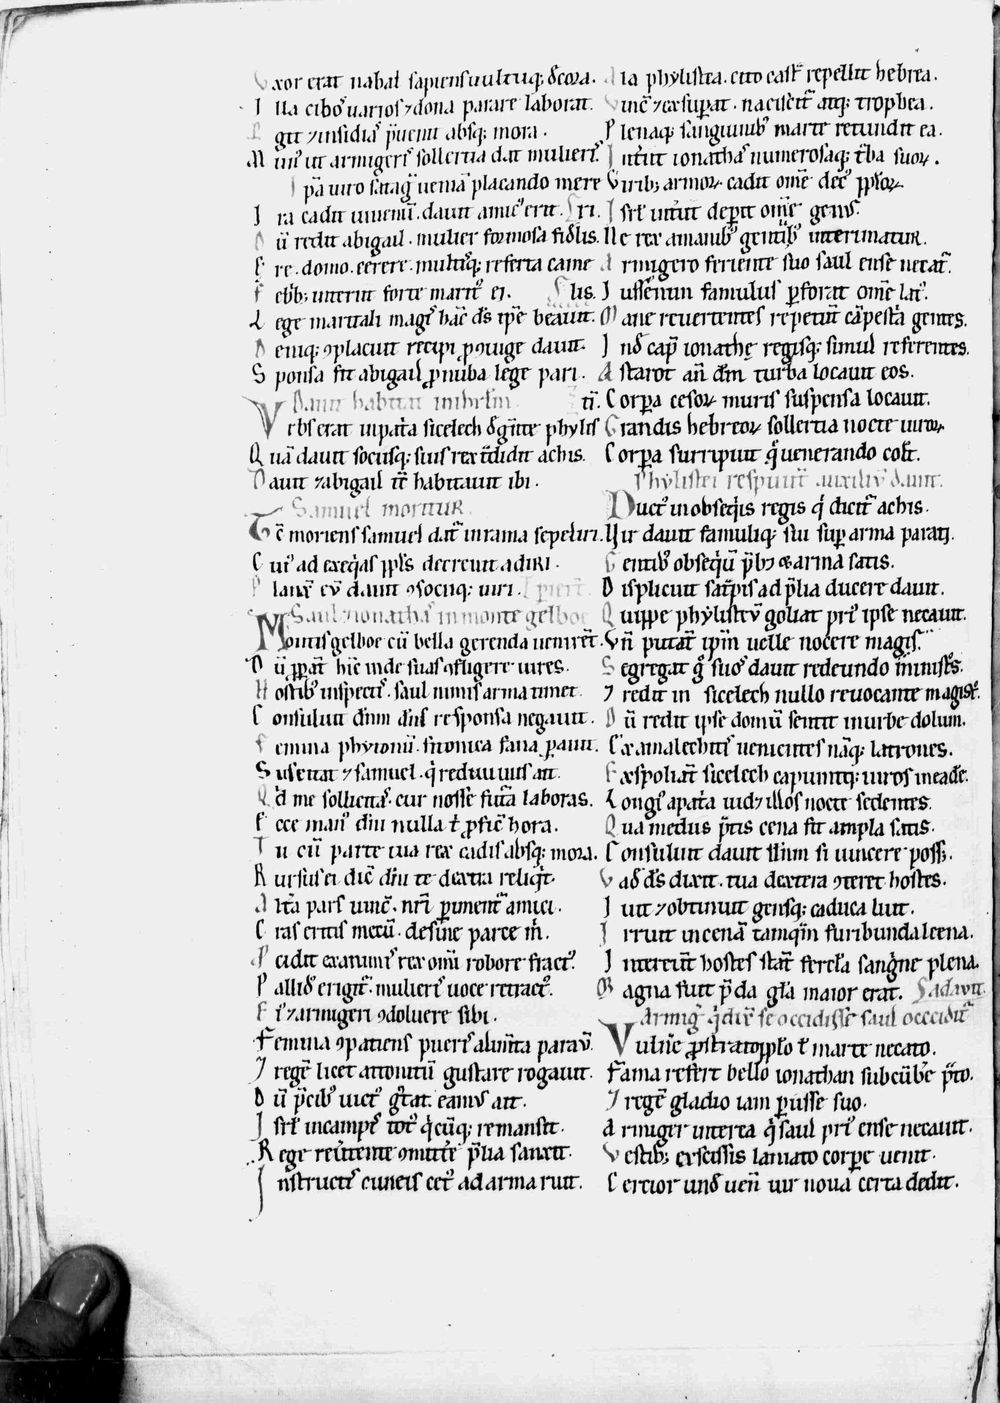 Vxor erat nabal sapiens uultuq; decora.
Illa cibos uarios ⁊ dona parare laborat.
Egit ⁊ insidias p̄uenit absq; mora.
ut armigeris sollertia dat mulieris
Ipa uiro satagit ueniā placando mereri.
Ira cadit iuuenū. dauit amicus erit.
Dū redit abigail. mulier formosa fidelis.
Ere. domo. cerere. multisq; referta camelis.
Febribus interiit forte maritus ei.
Lege maritali magis hāc ds ipse beauit.
Deniq; ꝯplacuit recipi ꝓ ꝯiuge dauit.
Sponsa fit abigail ꝓnuba lege pari.
Dauit habitat in
Vrbs erat uipata sicelech de gente phylistī.
Quā dauit sociisq; suis rex tradidit achis.
Dauit ⁊ abigail itē habitauit ibi.
Samuel moritur
Tē moriens samuel datur in rama sepeliri.
Cuius ad exeqias ppls decreuit adiri.
Planxerunt eū dauit ꝯsociiq; uiri.
Saul ⁊ ionathas in monte gelboe
Montis gelboe cū bella gerenda uenirēt.
Dū ꝓperat hīc inde suas ꝯfligere uires.
Hostibus inspectis. saul nimis arma timet.
Consuluit dnm dns responsa negauit.
Femina phytonii. fitonica fana parauit.
Suscitat ⁊ samuel. qi rediuiuus ait.
Qd me sollicitas. cur nosse futura laboras.
Ecce manus dni nulla tibi ꝓficit hora.
Tu cū parte tua rex cadis absq; mora.
Rursus ei dicit dni te dextra reliqit.
Altera pars uincet. nri perimentur amici.
Cras eritis mecū. desine parce mihi.
Accidit exanimis rex omi robore fractus.
Pallidus erigitur. mulieris uoce retractus.
Ei ⁊ armigeri ꝯdoluere sibi.
Femina ꝯpatiens pueris alimta parauit.
⁊ regē licet attonitū gustare rogauit.
Dū p̄cibus uictus gustat. eamus ait.
Isrl in campis totus qicūq; remansit.
Rege reuertente ꝯmittere p̄lia sanxit.
Instructis cuneis cetus ad arma ruit.
Ala phylistea. cito castra repellit hebrea.
Vincit ⁊ exsuperat. nascisc̄it̄ atq; trophea.
Plenaq; sanguinibus marte retundit ea.
Interit ionathas numerosaq; turba suorum.
Viribus armorum cadit omne decus pplorum
Isrl interit deperit omne genus.
Ne rex a manibus gentilibus interimatur.
Armigero feriente suo saul ense necatur.
Iussentum famulus perforat omne latus.
Mane reuertentes repetunt capestra gentes.
Inde caput ionathe regisq; simul referentes.
Astarot ante dm turba locauit eos.
Corpora cesorum muris suspensa locauit.
Grandis hebreorum sollertia nocte uirorum.
Corpora surripiuit que uenerando colit.
Phylistei respuunt auxiliū dauit.
Ductus in obseqiis regis qi dicitur achis.
Vir dauit famuliq; sui super arma parati.
Gentibus obseqium prebet & arma satis.
Displicuit satrapis ad p̄lia ducere dauit.
Quippe phylistrū goliat prius ipse necauit.
Vn putatur ipm uelle nocere magis.
Segregat ergo suos dauit redeundo ministros.
⁊ redit in sicelech nullo reuocante magistro.
Dū redit ipse domū sentit in urbe dolum.
Ex amalechitis uenientes nāq; latrones.
Exspoliant sicelech capiuntq; uiros
Longius aparata uidet illos nocte sedentes.
Qua medus p̄tis cena fit ampla satis.
Consuluit dauit dnm si uincere posset.
Vade ds dixit. tua dextera ꝯteret hostes.
Iuit ⁊ obtinuit gensq; caduca luit.
Irruit in cenā tamqm furibunda leena.
Intereunt hostes stant fercula sangine plena.
Magna fuit p̄da gla maior erat.
Armiger qi dixerat se occidisse saul occiditur a dauit.
Vulnere ꝓstrato pplo tibi marte necato.
Fama refert bello ionathan subcūbere presto.
⁊ regē gladio iam periisse suo.
Armiger interea qi saul prius ense necauit.
Vestibus exscissis laniato corpore uenit.
Certior unde uenit uir noua certa dedit.